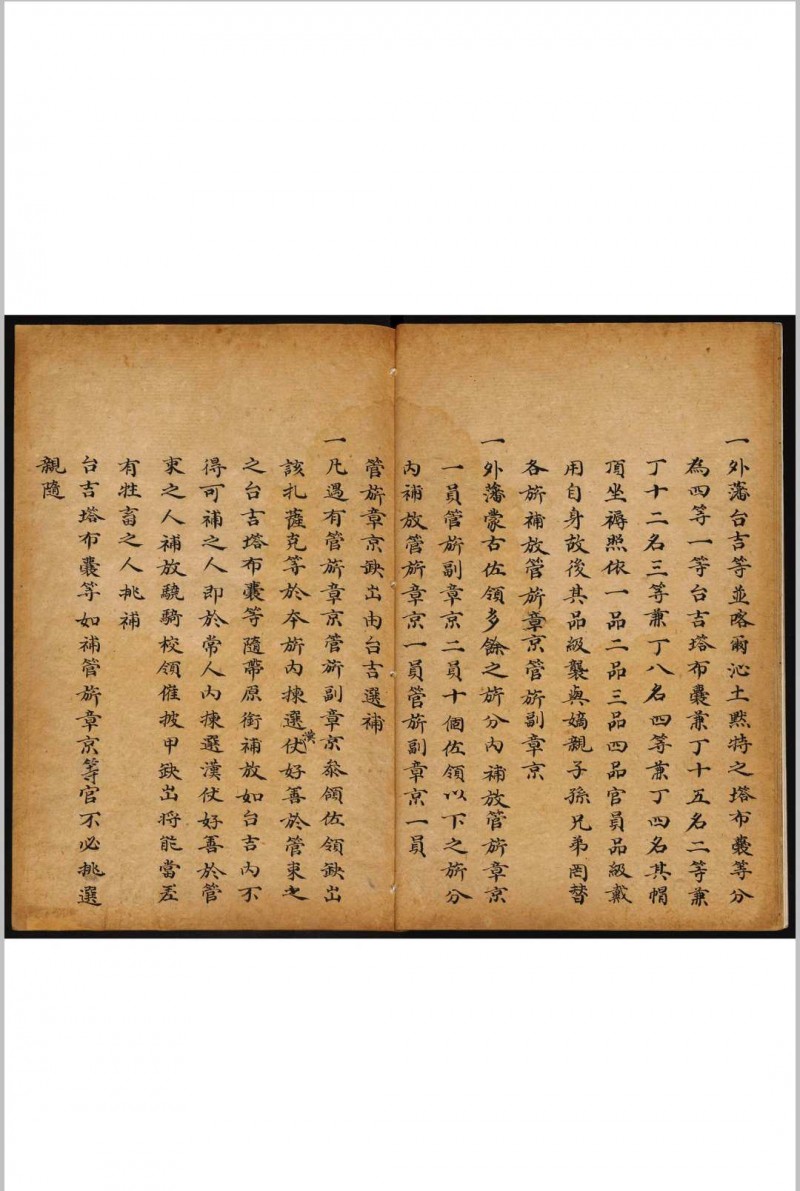 一外藩台吉等並喀爾沁土黙特之塔布囊等分
為四等一等台吉塔布囊兼丁十五名二等兼
丁十二名三等兼丁八名四等兼丁四名其帽
頂坐褥照依一品二品三品四品官員品級戴
用自身故後其品級襲與嫡親子孫兄弟罔替
各旂補放管旂章京管旂副章京
一外藩蒙古佐領多餘之旂分內補放管旂章京
一員管旂副章京二員十個佐領以下之旂分
內補放管旂章京一員管旂副章京一員
管旂章京缺出由台吉選補
一凡遇有管旂章京管旂副章京叅領佐領缺出
該扎薩克等於本旂內揀選漢仗好善於管束之
之台吉塔布囊等隨帶原銜補放如台吉內不
得可補之人即於常人內揀選漢仗好善於管
束之人補放驍騎校領催披甲缺出將能當差
有牲畜之人挑補
台吉塔布囊等如補管旂章京等官不必挑選
親隨